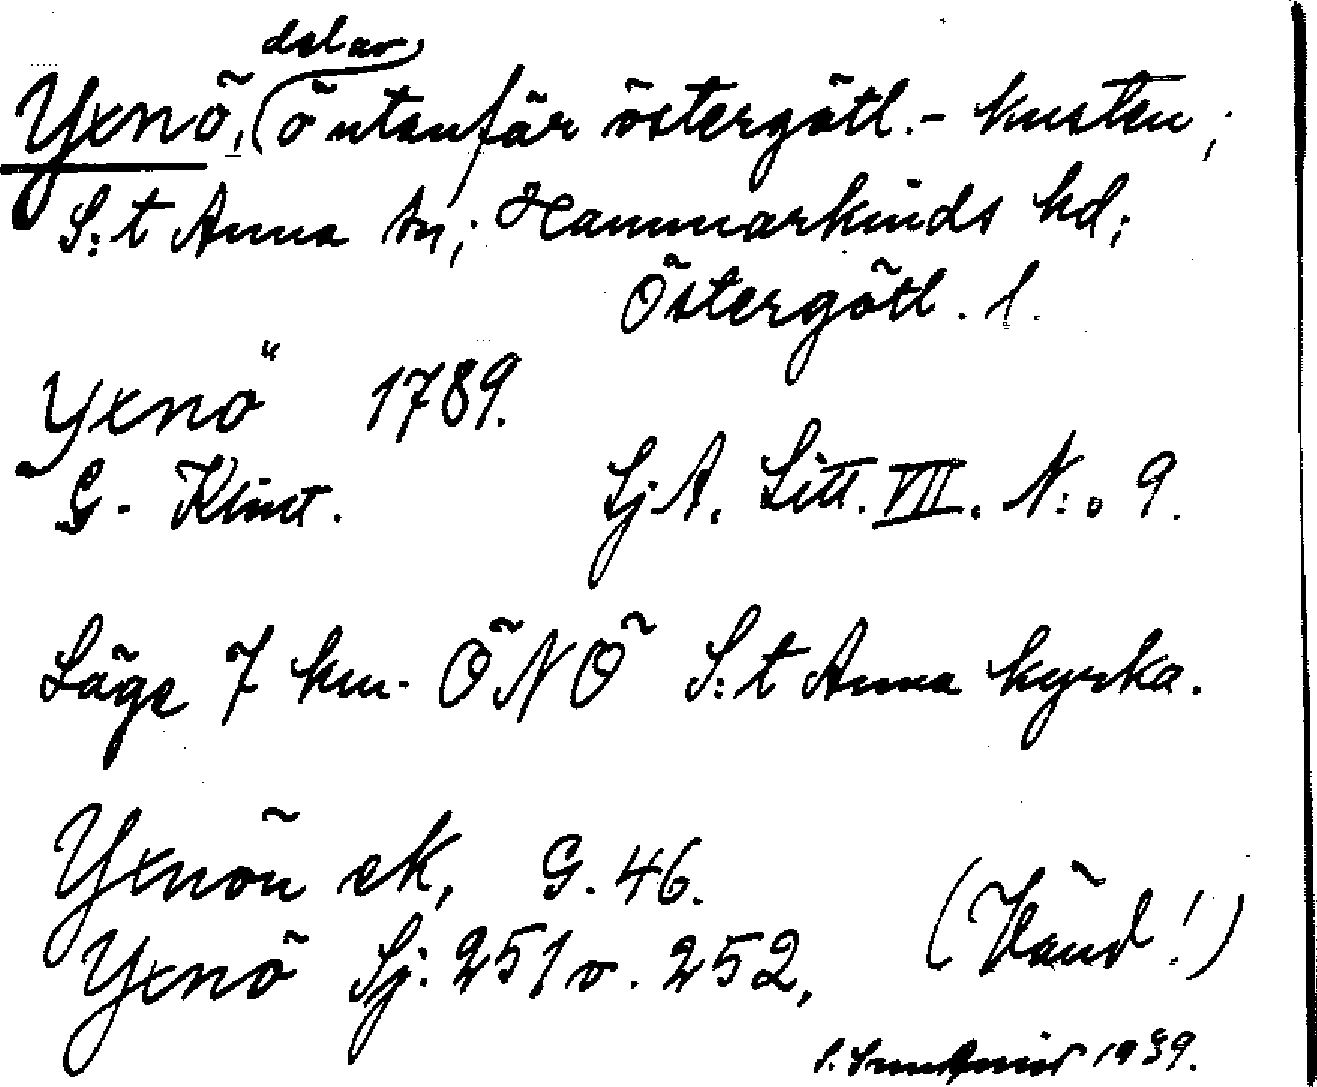 del av
Yxnö, (ö utanför östergötl.- kusten;
S:t Anna sn; Hammarkinds hd;
Östergötl. l.
Yxnö 1789.
G. Klint. Sj A. Litt. VII. N:o 9.
Läge 7 km. ÖNÖ S:t Anna kyrka.
Yxnön ek, G. 46.
Yxnö Sj. 251 o. 252,
(Vänd!)
1939.